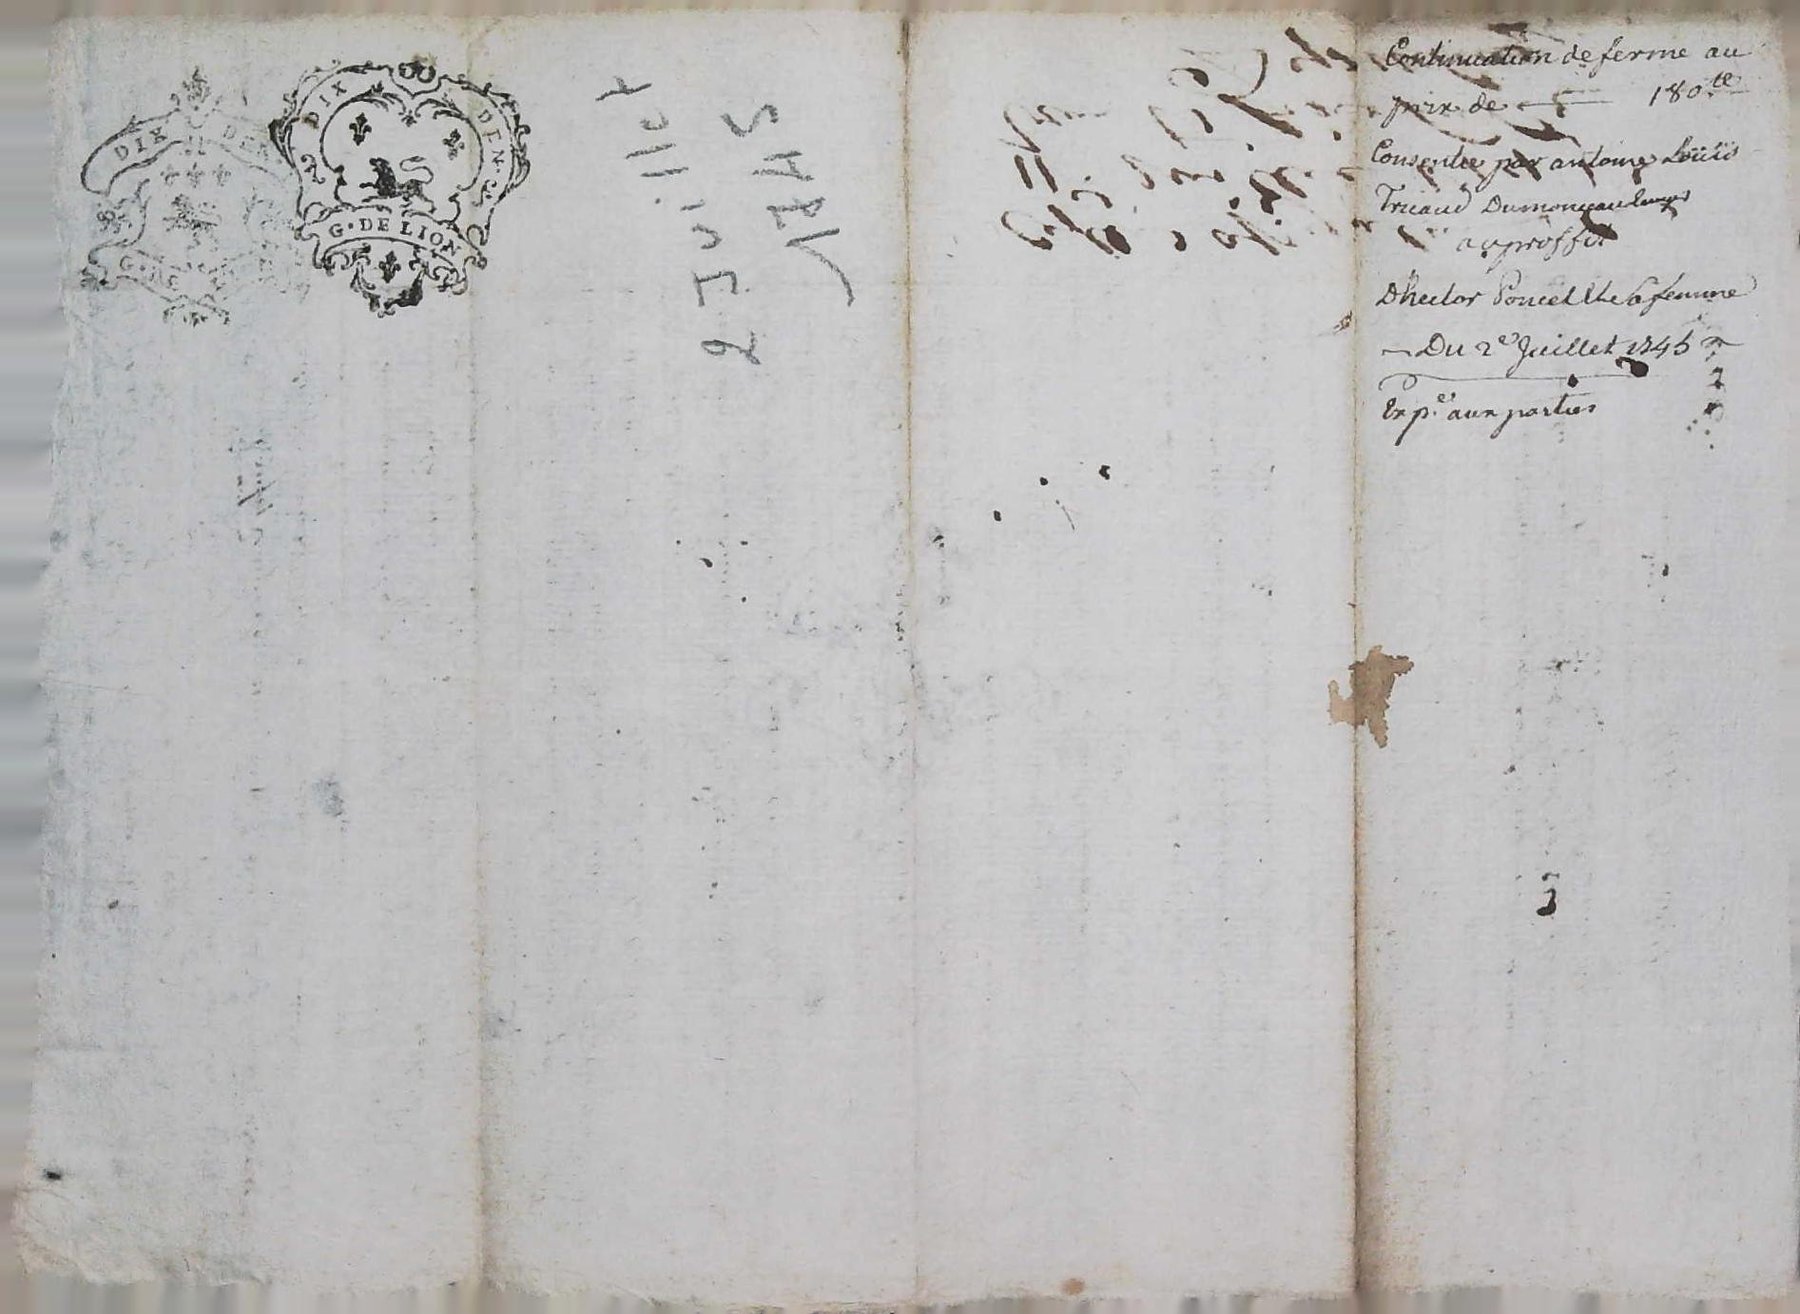 DIX DEN.
G. DE
DIX DEN.
2
G. DE LION
2 Juillet
1745
Continuation de ferme au
prix de 180 ᵗᵗ
Consentie par antoine Loüis
Triaud Dumonceau
au proffit
D'hector Poncet et sa femme
Du 2e Juillet 1745
Exp.ée aux parties